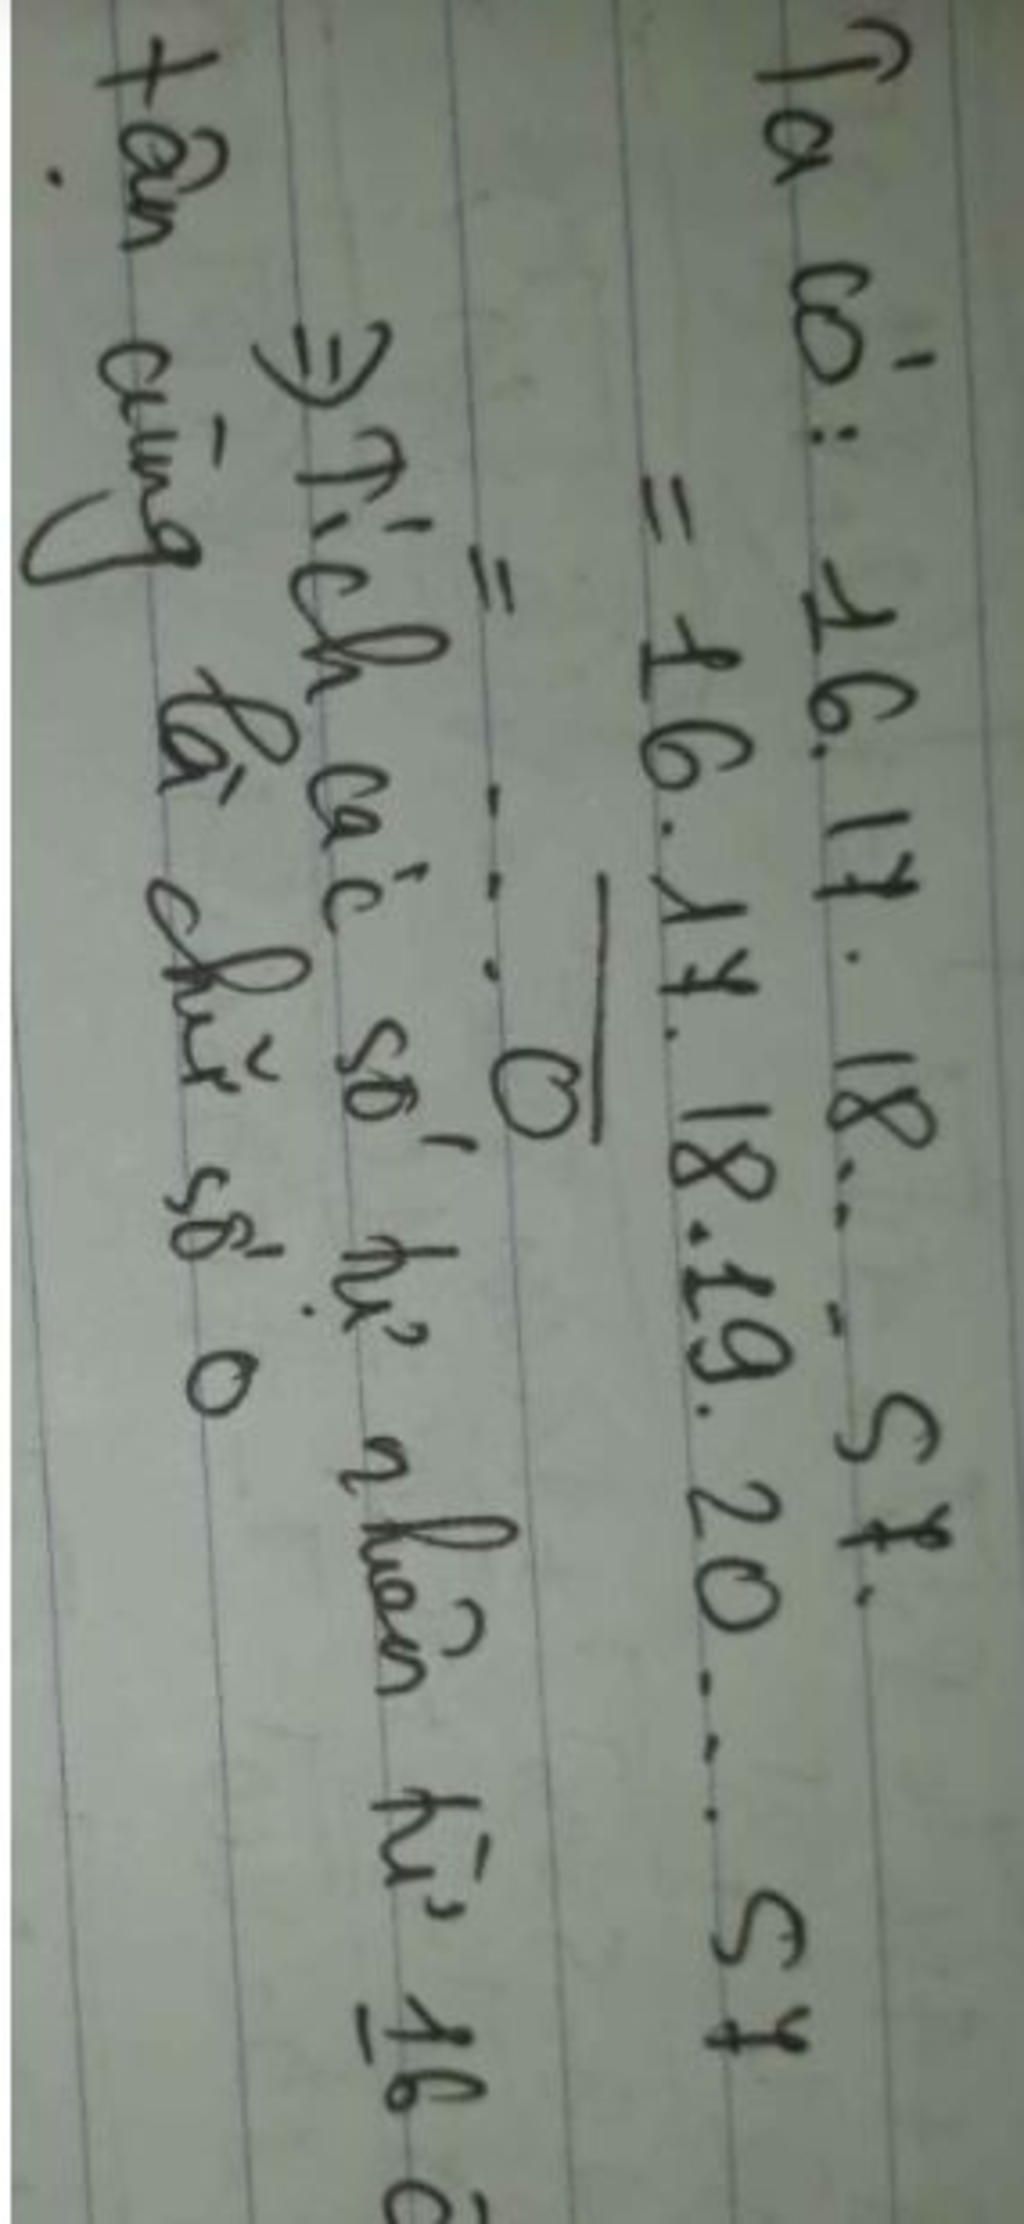 Ta có: 16.17.18... - 57.
= 16.17.18.19.20 ---. 57
= --. 0
⇒ Tích các số tự nhiên từ 16
tận cùng là chữ số 0